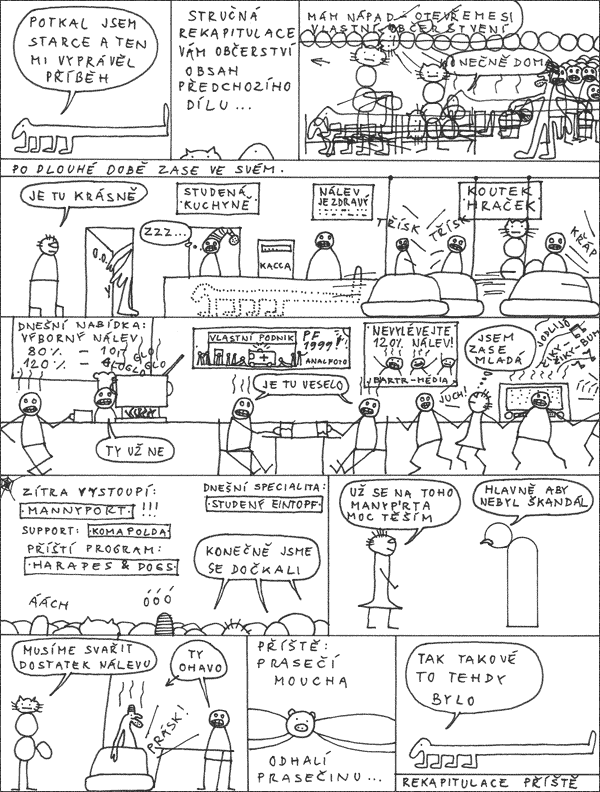 POTKAL JSEM
STARCE A TEN
MI VYPRÁVĚL
PŘÍBĚH
STRUČNÁ
REKAPITULACE
VÁM OBČERSTVÍ
OBSAH
PŘEDCHOZÍHO
DÍLU...
MÁM NÁPAD - OTEVŘEME SI
VLASTNÍ OBČERSTVENÍ
KONEČNĚ DOMA
PO DLOUHÉ DOBĚ ZASE VE SVÉM.
JE TU KRÁSNĚ
STUDENÁ
KUCHYNĚ
ZZZ...
KACCA
NÁLEV
JE ZDRAVÝ
TŘÍSK
TŘÍSK
KOUTEK
HRAČEK
KŘÁP
DNEŠNÍ NABÍDKA:
VÝBORNÝ NÁLEV
80% - 10,-
120% -
GLO
GLO
GLOGLO
TY UŽ NE
VLASTNÍ PODNIK
PF
1999!
ANALFOTO
JE TU VESELO
NEVYLÉVEJTE
120% NÁLEV!
BARTR-MÉDIA
JUCH!
JSEM
ZASE
MLADÁ
ZÍTRA VYSTOUPÍ:
MANNYPORT !!!
SUPPORT: KOMAPOLDA
PŘÍŠTÍ PROGRAM:
HARAPES & DOGS
DNEŠNÍ SPECIALITA:
STUDENÝ EINTOPF
KONEČNĚ JSME
SE DOČKALI
ÁÁCH
ÓÓÓ
UŽ SE NA TOHO
MANYPRTA
MOC TĚŠÍM
HLAVNĚ ABY
NEBYL ŠKANDÁL
MUSÍME SVAŘIT
DOSTATEK NÁLEVU
TY
OHAVO
PRÁSK!
PŘÍŠTĚ:
PRASEČÍ
MOUCHA
ODHALÍ
PRASEČINU...
TAK TAKOVÉ
TO TEHDY
BYLO
REKAPITULACE PŘÍŠTĚ